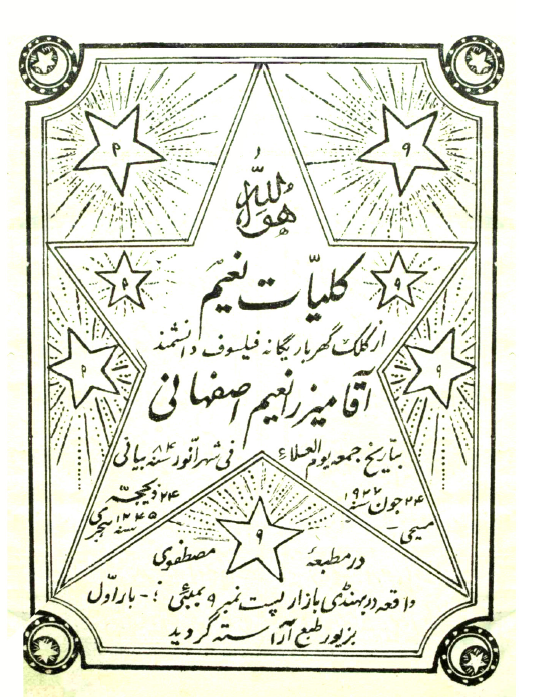 ۹ ۹
هو الله
۹ ۹
کلیّات نعیم
از کلک گهربار یگانه فیلسوف دانشمند
۹ ۹
آقا میرزا نعیم اصفهانی
بتاریخ جمعه یوم العلاء فی شهر النور سنه ۸۴ بیانی
۲۴ جون سنه ۱۹۲۷ ۲۴ ذیحجّه
مسیحی - سنه ۱۳۴۵ هجری
۹
در مطبعهٔ مصطفوی
واقعه در بهندی بازار پست نمبر ۹ بمبئی :- بار اوّل
بزیور طبع آراسته گردید